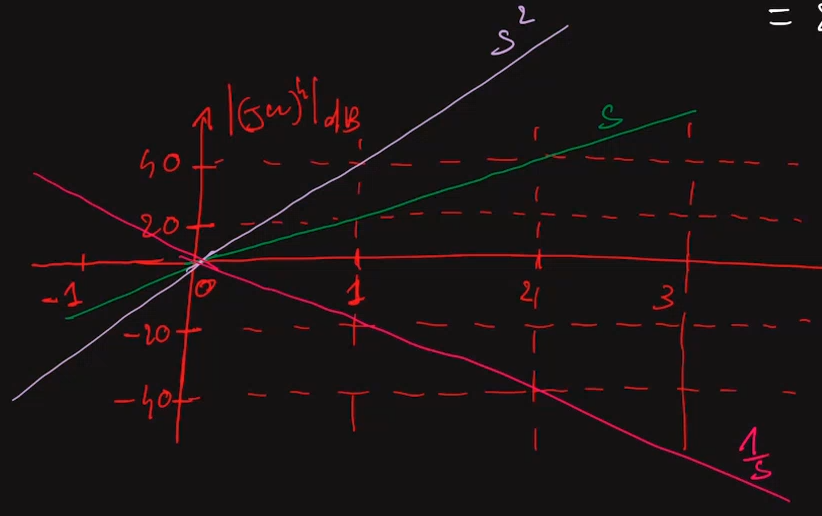 = 
S²
|(jω)ʰ|dB
S
40
20
-1
0
1
2
3
-20
-40
1/S